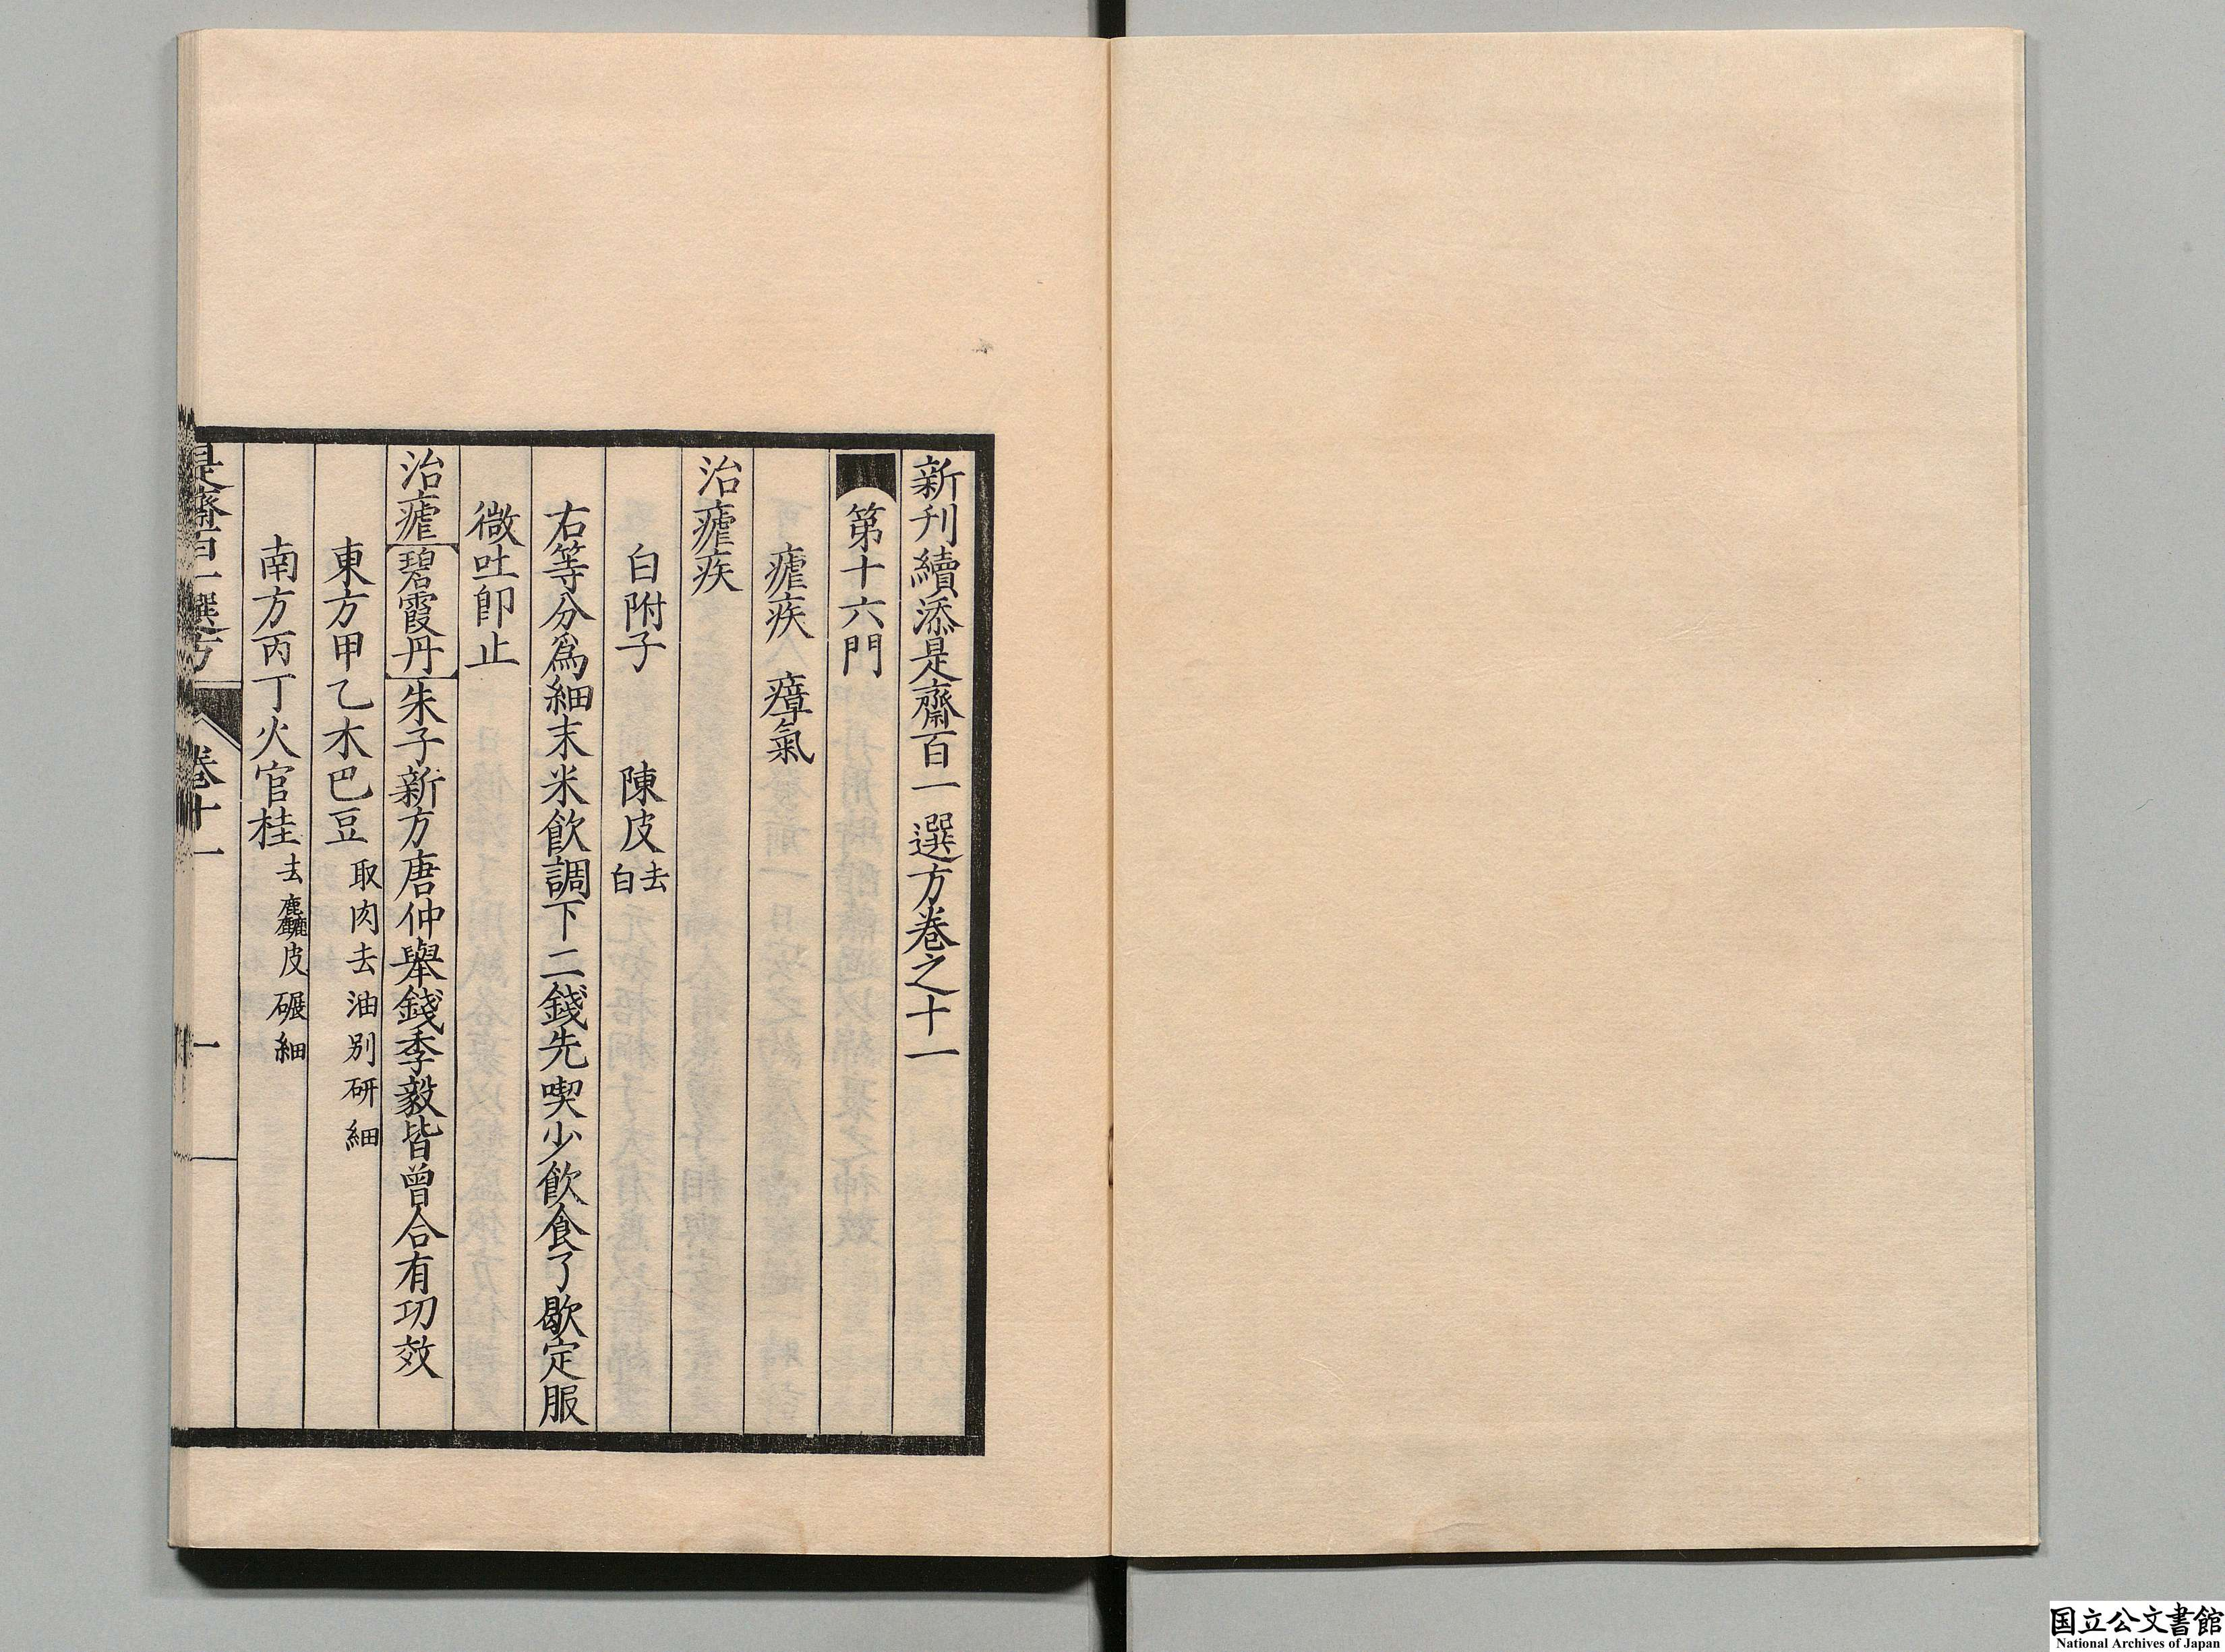 新刊續添是齋百一選方卷之十一
第十六門
瘧疾　瘴氣
治瘧疾
白附子　陳皮去白
右等分爲細末米飲調下二錢先喫少飲食了歇定服
微吐卽止
治瘧碧霞丹朱子新方唐仲舉錢季毅皆曾合有功效
東方甲乙木巴豆取肉去油別研細
南方丙丁火官桂去麤皮碾細
是齋百一選方　卷十一　一
国立公文書館
National Archives of Japan